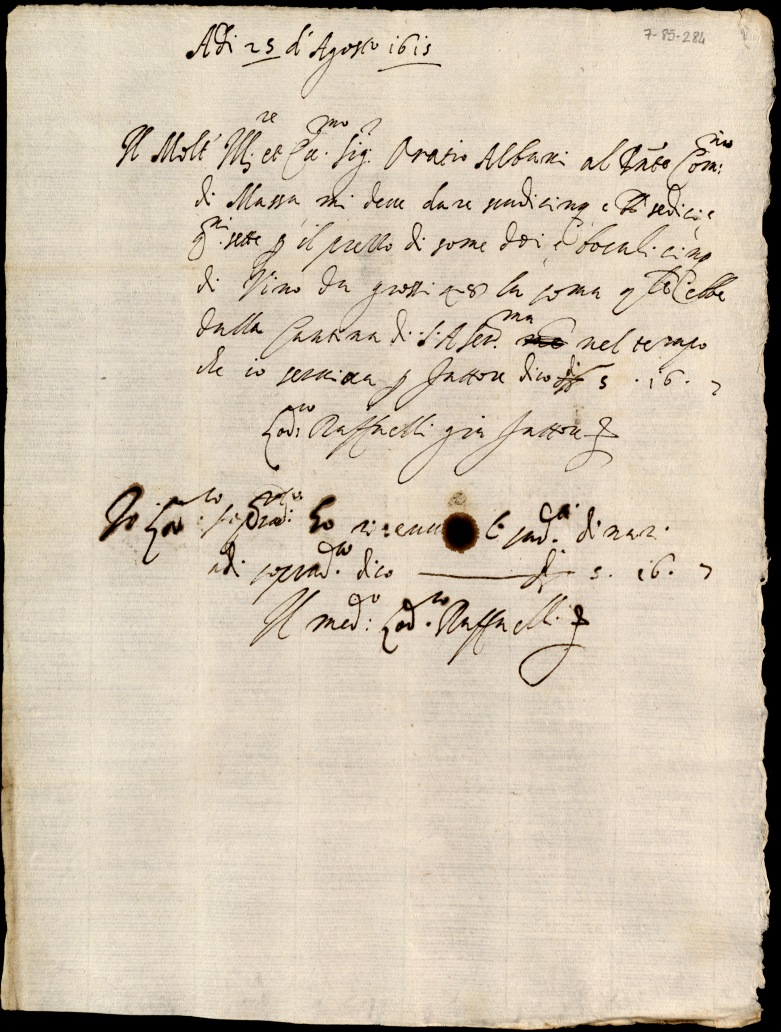 7-85-284
Adi 25 d'Agosto 1615
Il Molt' Ill.re et Ecc.mo Sig.r Oratio Albani al p'nte Com.rio
di Massa mi deve dare scudi cinq e sedici e
q.ni sette p il prezzo di some doi e bocali cinq
di Vino da grossi la soma q.le l'ebbe
dalla Cantina di S. A. Ser.ma nel tempo
che io serviva p fattore dico 5 . 16 . 7
Lod.co Raffaelli già fattore
Io Lod.co sop.to ho ricevuto li sud.i dinari
adi soprad.o dico 5 . 16 . 7
Il med.o Lod.co Raffaelli